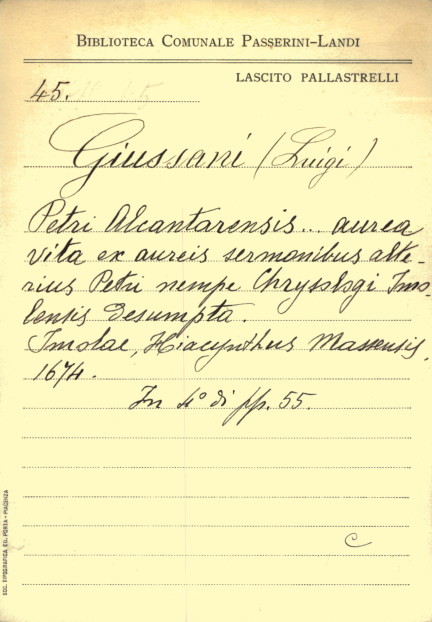 BIBLIOTECA COMUNALE PASSERINI-LANDI
LASCITO PALLASTRELLI
45.
Giussani (Luigi)
Petri Alcantarensis... aurea
vita ex aureis sermonibus alte-
rius Petri nempe Chrysologi Imo-
lensis desumpta.
Imolae, Hiacynthus Massensis,
1674.
In 4° di pp. 55.
c
SOC. TIPOGRAFICA ED. PORTA - PIACENZA